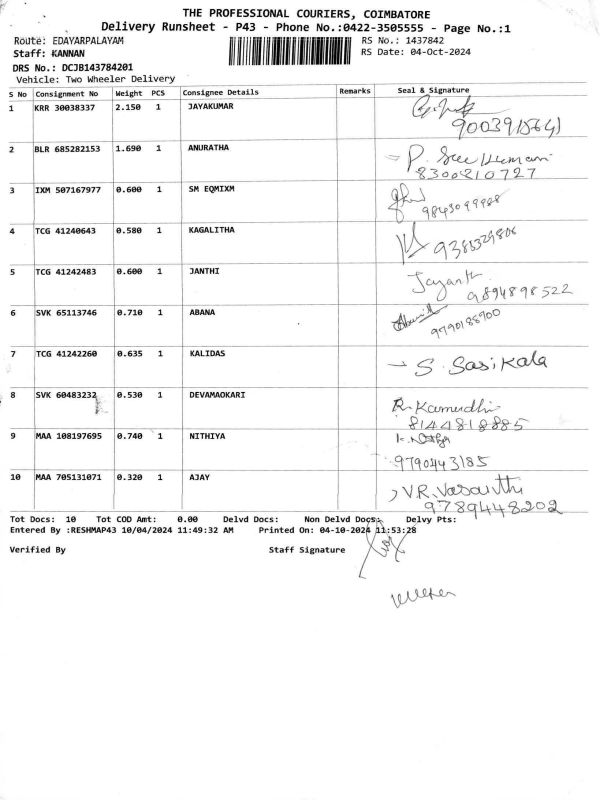 THE PROFESSIONAL COURIERS, COIMBATORE
Delivery Runsheet - P43 - Phone No.:0422-3505555 - Page No.:1
Route: EDAYARPALAYAM
RS No.: 1437842
Staff: KANNAN
RS Date: 04-Oct-2024
DRS No.: DCJB143784201
Vehicle: Two Wheeler Delivery
S No Consignment No Weight PCS Consignee Details Remarks Seal & Signature
1 KRR 30038337 2.150 1 JAYAKUMAR
2 BLR 685282153 1.690 1 ANURATHA
P.
8300810727
3 IXM 507167977 0.600 1 SM EQMIXM
4 TCG 41240643 0.580 1 KAGALITHA
9385329806
5 TCG 41242483 0.600 1 JANTHI
Jayanth
9894898522
6 SVK 65113746 0.710 1 ABANA
9790188900
7 TCG 41242260 0.635 1 KALIDAS
S. Sasikala
8 SVK 60483232 0.530 1 DEVAMAOKARI
R. Kamudhi
8144818885
9 MAA 108197695 0.740 1 NITHIYA
9790443185
10 MAA 705131071 0.320 1 AJAY
V.R. Vasanthi
9789448202
Tot Docs: 10 Tot COD Amt: 0.00 Delvd Docs: Non Delvd Docs: Delvy Pts:
Entered By :RESHMAP43 10/04/2024 11:49:32 AM Printed On: 04-10-2024 11:53:28
Verified By Staff Signature